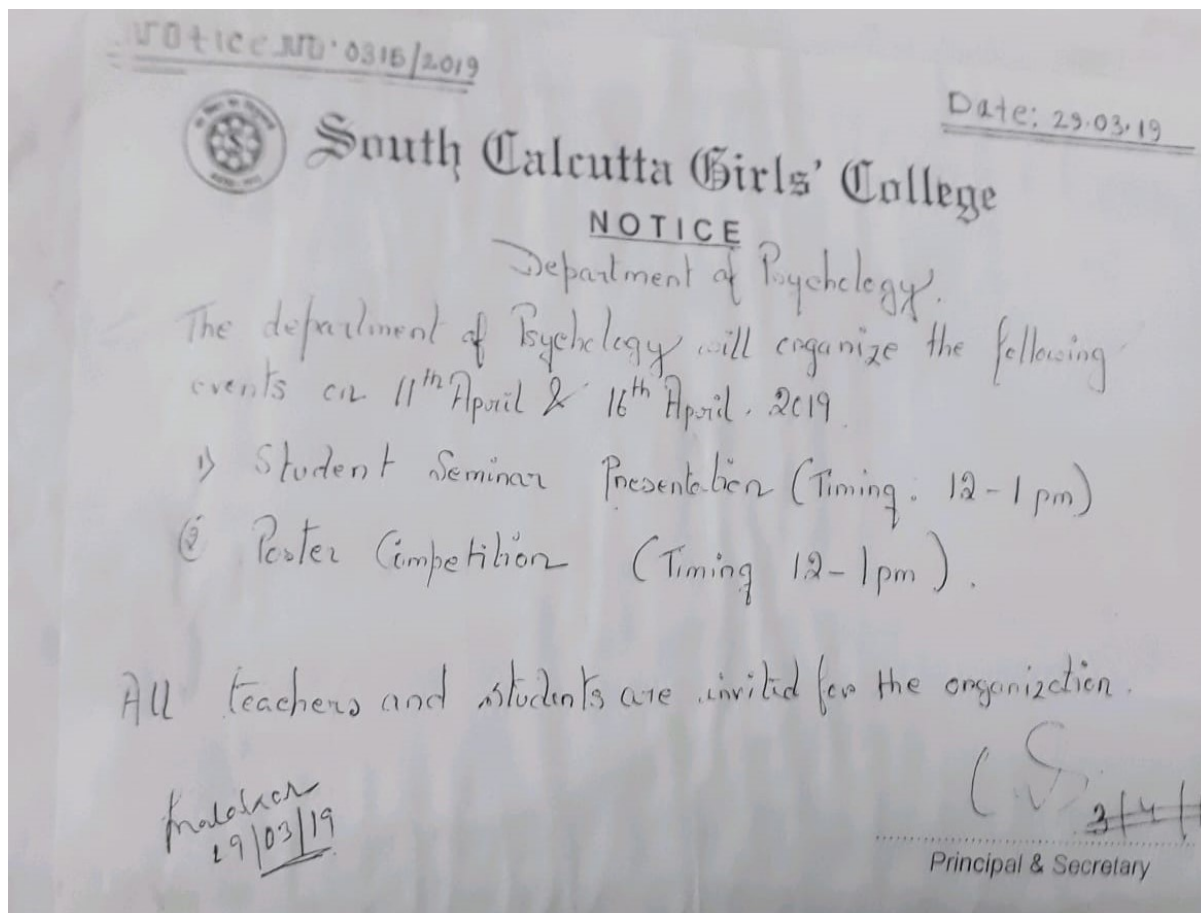 Notice No. 0315/2019
Date: 29.03.19
South Calcutta Girls' College
NOTICE
Department of Psychology.
The department of Psychology will organize the following
events on 11th April & 16th April. 2019.
1) Student Seminar Presentation (Timing: 12-1 pm)
② Poster Competition (Timing 12-1pm).
All teachers and students are invited for the organization.
29/03/19
3/4/
Principal & Secretary